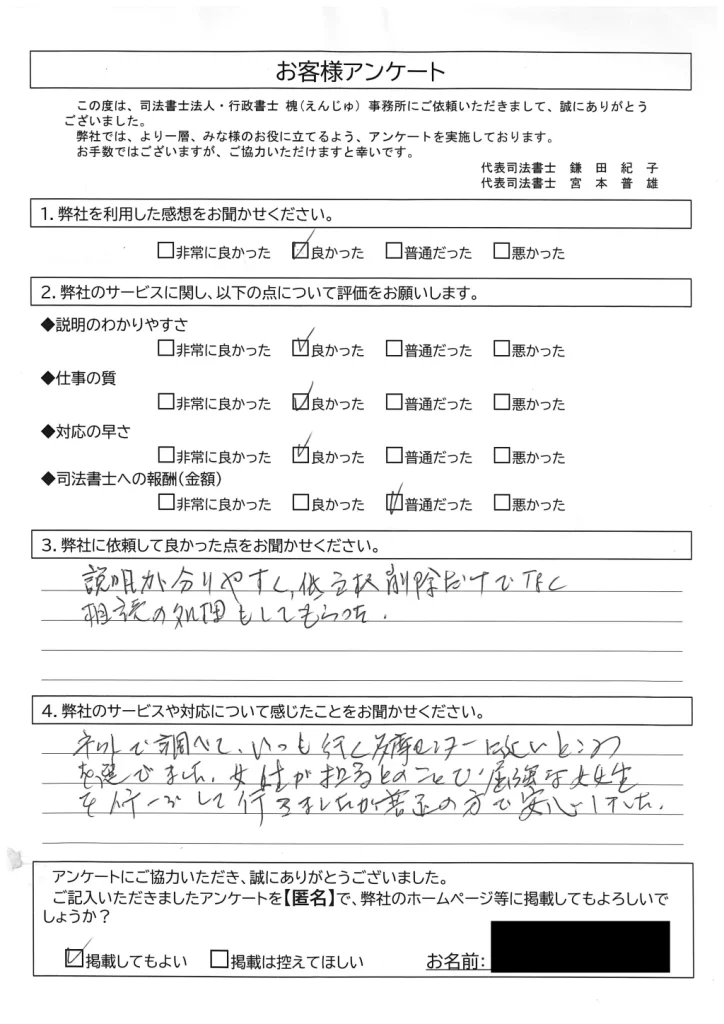 お客様アンケート
この度は、司法書士法人・行政書士 槐(えんじゅ) 事務所にご依頼いただきまして、誠にありがとう
ございました。
弊社では、より一層、みな様のお役に立てるよう、アンケートを実施しております。
お手数ではございますが、ご協力いただけますと幸いです。
代表司法書士 鎌田紀子
代表司法書士 宮本普雄
1. 弊社を利用した感想をお聞かせください。
□非常に良かった ☑良かった □普通だった □悪かった
2. 弊社のサービスに関し、以下の点について評価をお願いします。
◆説明のわかりやすさ
□非常に良かった ☑良かった □普通だった □悪かった
◆仕事の質
□非常に良かった ☑良かった □普通だった □悪かった
◆対応の早さ
□非常に良かった ☑良かった □普通だった □悪かった
◆司法書士への報酬(金額)
□非常に良かった □良かった ☑普通だった □悪かった
3. 弊社に依頼して良かった点をお聞かせください。
説明が分りやすく、抵当権削除だけでなく
相談の処理もしてもらった.
4. 弊社のサービスや対応について感じたことをお聞かせください。
ネットで調べて、いつも行く多摩センターに近いところ
を選びました。女性が担当とのことで
して行きましたが普通の方で安心しました.
アンケートにご協力いただき、誠にありがとうございました。
ご記入いただきましたアンケートを【匿名】で、弊社のホームページ等に掲載してもよろしいで
しょうか?
☑掲載してもよい □掲載は控えてほしい お名前: